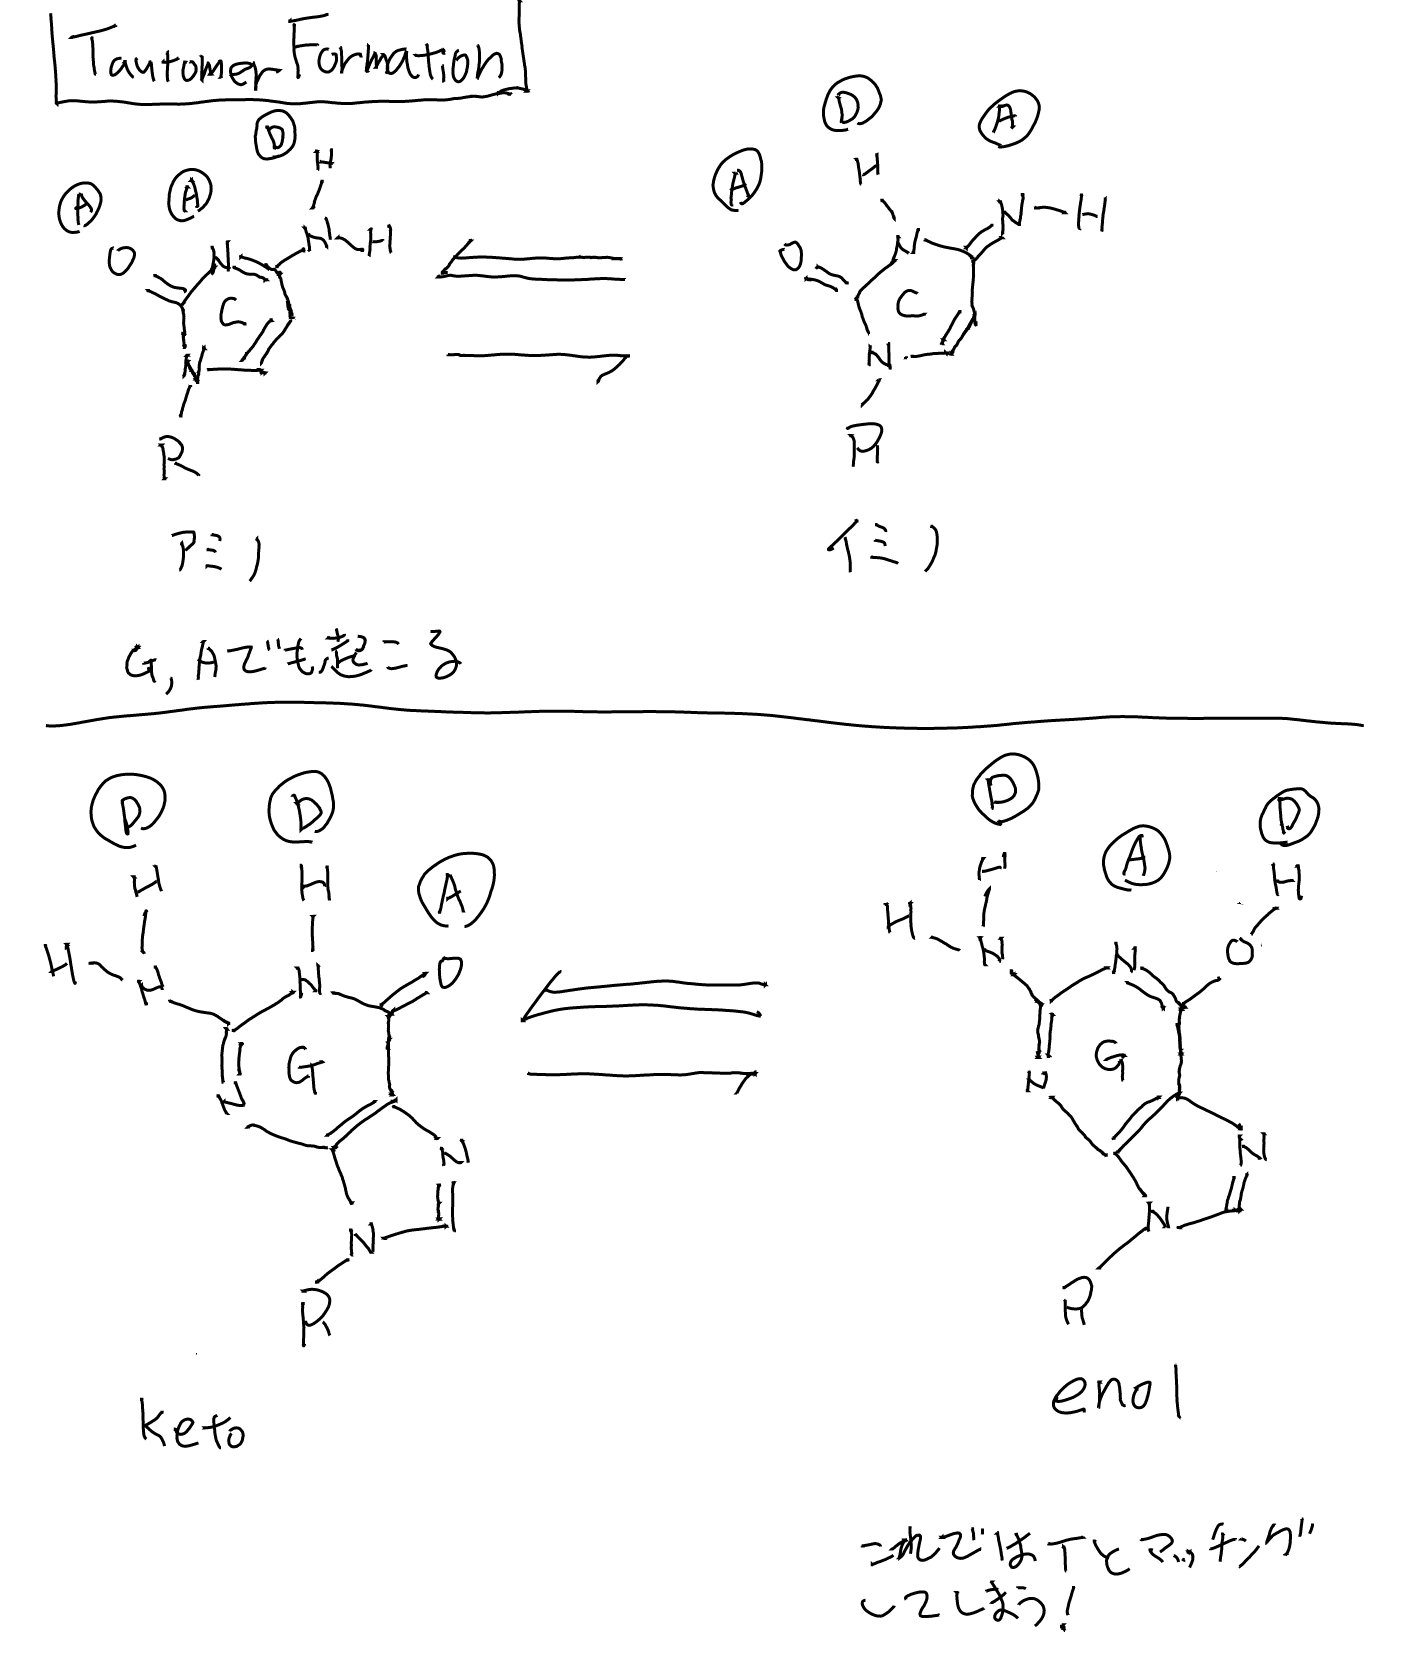 Tautomer Formation
D
A A
H
O N N H
C
N
R
アミノ
D A
A
H
N H
O N
C
N
R
イミノ
G, Aでも起こる
D D
A
H H
H N N O
G
N
N
N
R
keto
D D
A
H H
H N N O
G
N
N
N
R
enol
これではTとマッチング
してしまう!